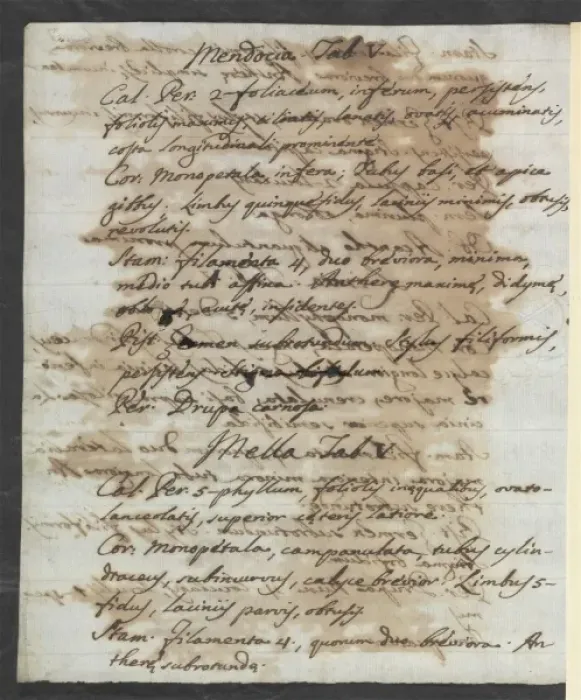 Mendocia Tab V.
Cal. Per. 2-foliaceum, inferum, persistens,
foliolis maximis, ciliatis, planatis, ovatis, acuminatis,
costa longitudinali prominente.
Cor: Monopetala, infera; Tubus basi, et apice
gibbus. Limbus quinquefidus, laciniis minimis, obtusis,
revolutis.
Stam: filamenta 4, duo breviora, minima,
medio tubi affixa. Antherę maximę, didymę,
acutę, insidentes.
Pist. Germen subrotundum Stylus filiformis,
persistens
Per. Drupa carnosa.
Mella Tab V
Cal. Per. 5-phyllum, foliolis inequalibus, ovato-
lanceolatis, superior ceteris latiore.
Cor: Monopetala, campanulata, tubus cylin-
draceus, subincurvus, calyce brevior. Limbus 5-
fidus, laciniis parvis, obtusis
Stam. Filamenta 4., quorum duo breviora. An
therę subrotundę.